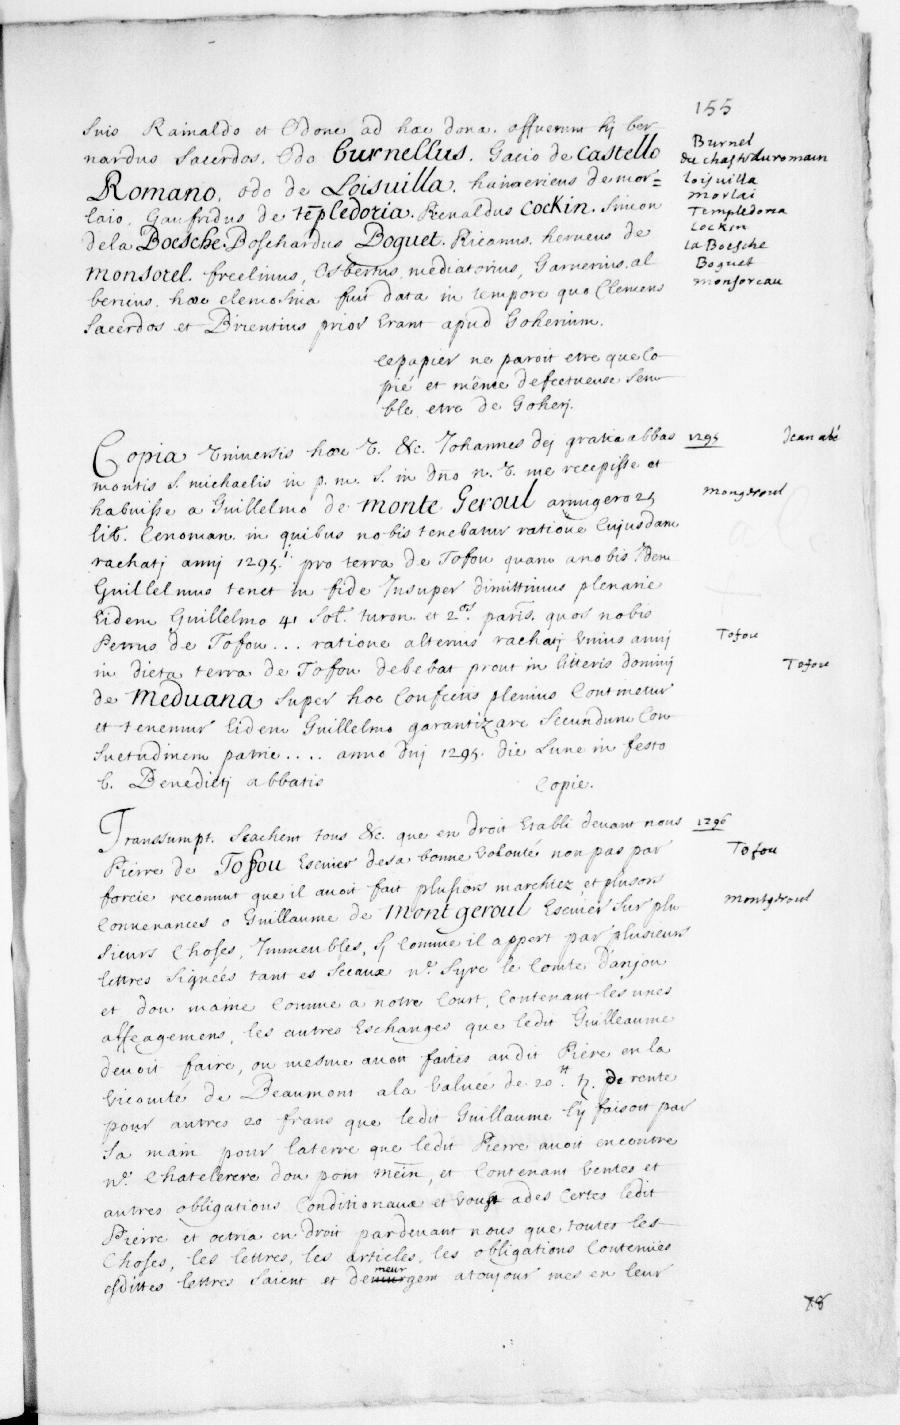 155
suis Rainaldo et Odone ad hæc dona. affuerunt hij ber
nardus Sacerdos. Odo Burnellus. Gacio de Castello
Romano. odo de Loisuilla. haimericus de mor=
laio. Gaufridus de tēpledoria. Renaldus Cockin. Simon
dela Boesche. Boschardus Boguet. Ricanus. herueus de
monsorel. freelinus, Osbertus, mediatorius, Garnerius. al
bericus. hæc elemosina fuit data in tempore quo Clemens
Sacerdos et Drientius prior erant apud Goherium.
Burnel
du chasteduromain
Loisuilla
morlai
Templedoria
Cockin
la Boesche
Boguet
monsoreau
ce papier ne paroit etre que Co
pié et même defectueuse Sem
ble etre de Goherj.
Copia Vniversis hæc V. &c. Johannes dej gratia abbas 1295 Jean abé
montis S. michaelis in p. m. S. in dno n. V. me recepisse et
habuisse a Guillelmo de monte Geroul armigero 25 mongeroul
lib. Cenoman. in quibus nobis tenebatur ratione Cujusdam
rachatj annj 1295.i pro terra de Tofou quam anobis Idem
Guillelmus tenet in fide Insuper dimittimus plenarie
Eidem Guillelmo 41 Sol. turon. et 2.os paris. quos nobis
Petrus de Tofou ... ratione alterius rachatj vnius annj Tofou
in dicta terra de Tofou debebat prout in litteris dominj Tofou
de Meduana super hoc Confectis plenius Continetur
et tenemur Eidem Guillelmo garantizare Secundum Con
suetudinem patrie .... anno dnj 1295. die Lune in festo
b. Benedictj abbatis Copie.
Transsumpt. Sçachent tous &c. que en droit Etabli devant nous 1296
Pierre de Tofou Escuier desa bonne Volonté non pas par Tofou
forcie reconnut que il auoit fait plusiors marchiez et plusors
Conuenances o Guillaume de Montgeroul Escuier Sur plu montgeroul
sieurs Choses, Immeubles, Sj Comme il appert par plusieurs
lettres Signées tant es Sceaux n.e Syre le Comte d'anjou
et dou maine Comme a notre Court, Contenant les unes
affeagemens, les autres Eschanges que ledit Guilleaume
deuoit faire, ou mesme auoit faites audit Piere en la
vicomté de Beaumont ala Valuée de 20.tt tz. de rente
pour autres 20 frans que ledit Guillaume lij faisoit par
Sa main pour laterre que ledit Pierre auoit encontre
n.e Chatelerere dou pont mein, et Contenant Ventes et
autres obligations Conditionaux et voust ades Certes ledit
Pierre et octria en droit pardeuant nous que toutes les
Choses, les lettres, les articles, les obligations Contenües
esdittes lettres Saient et demeurgem atoujour mes en leur
78